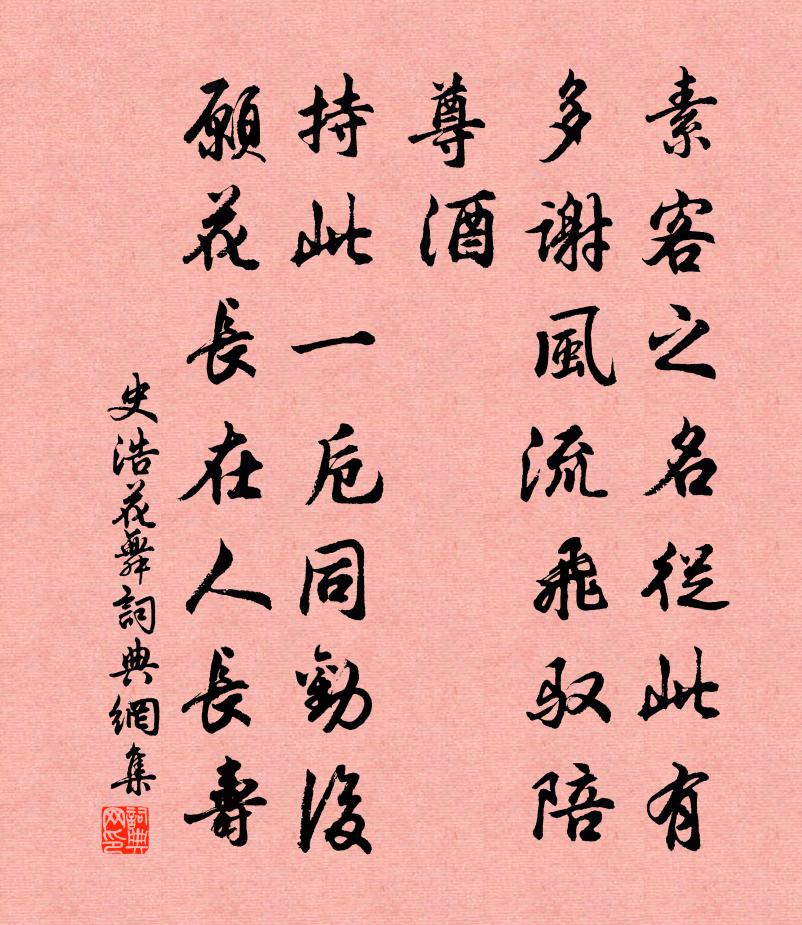 素客之名從此有
多謝風流飛馭陪
尊酒
持此一卮同勸後
願花長在人長壽
史浩花舞詞典網集
詞典网印